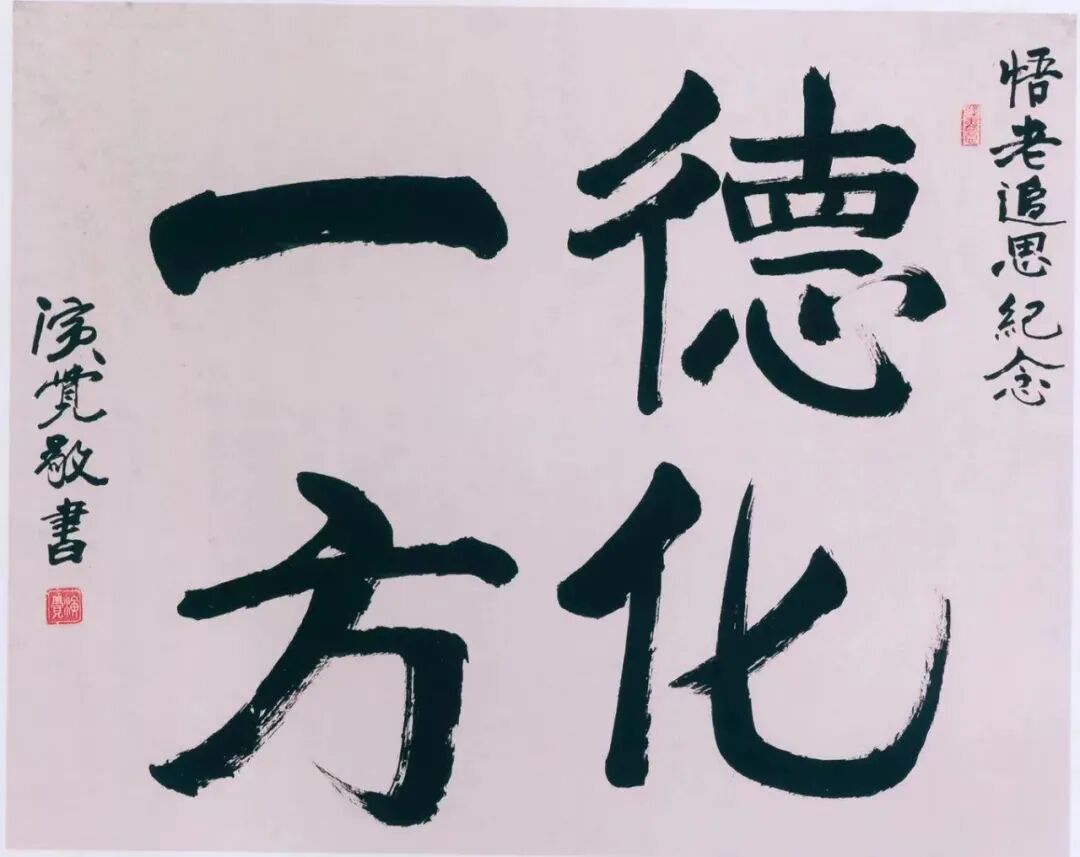 悟老追思紀念
德化
一方
演覺敬書
演覺